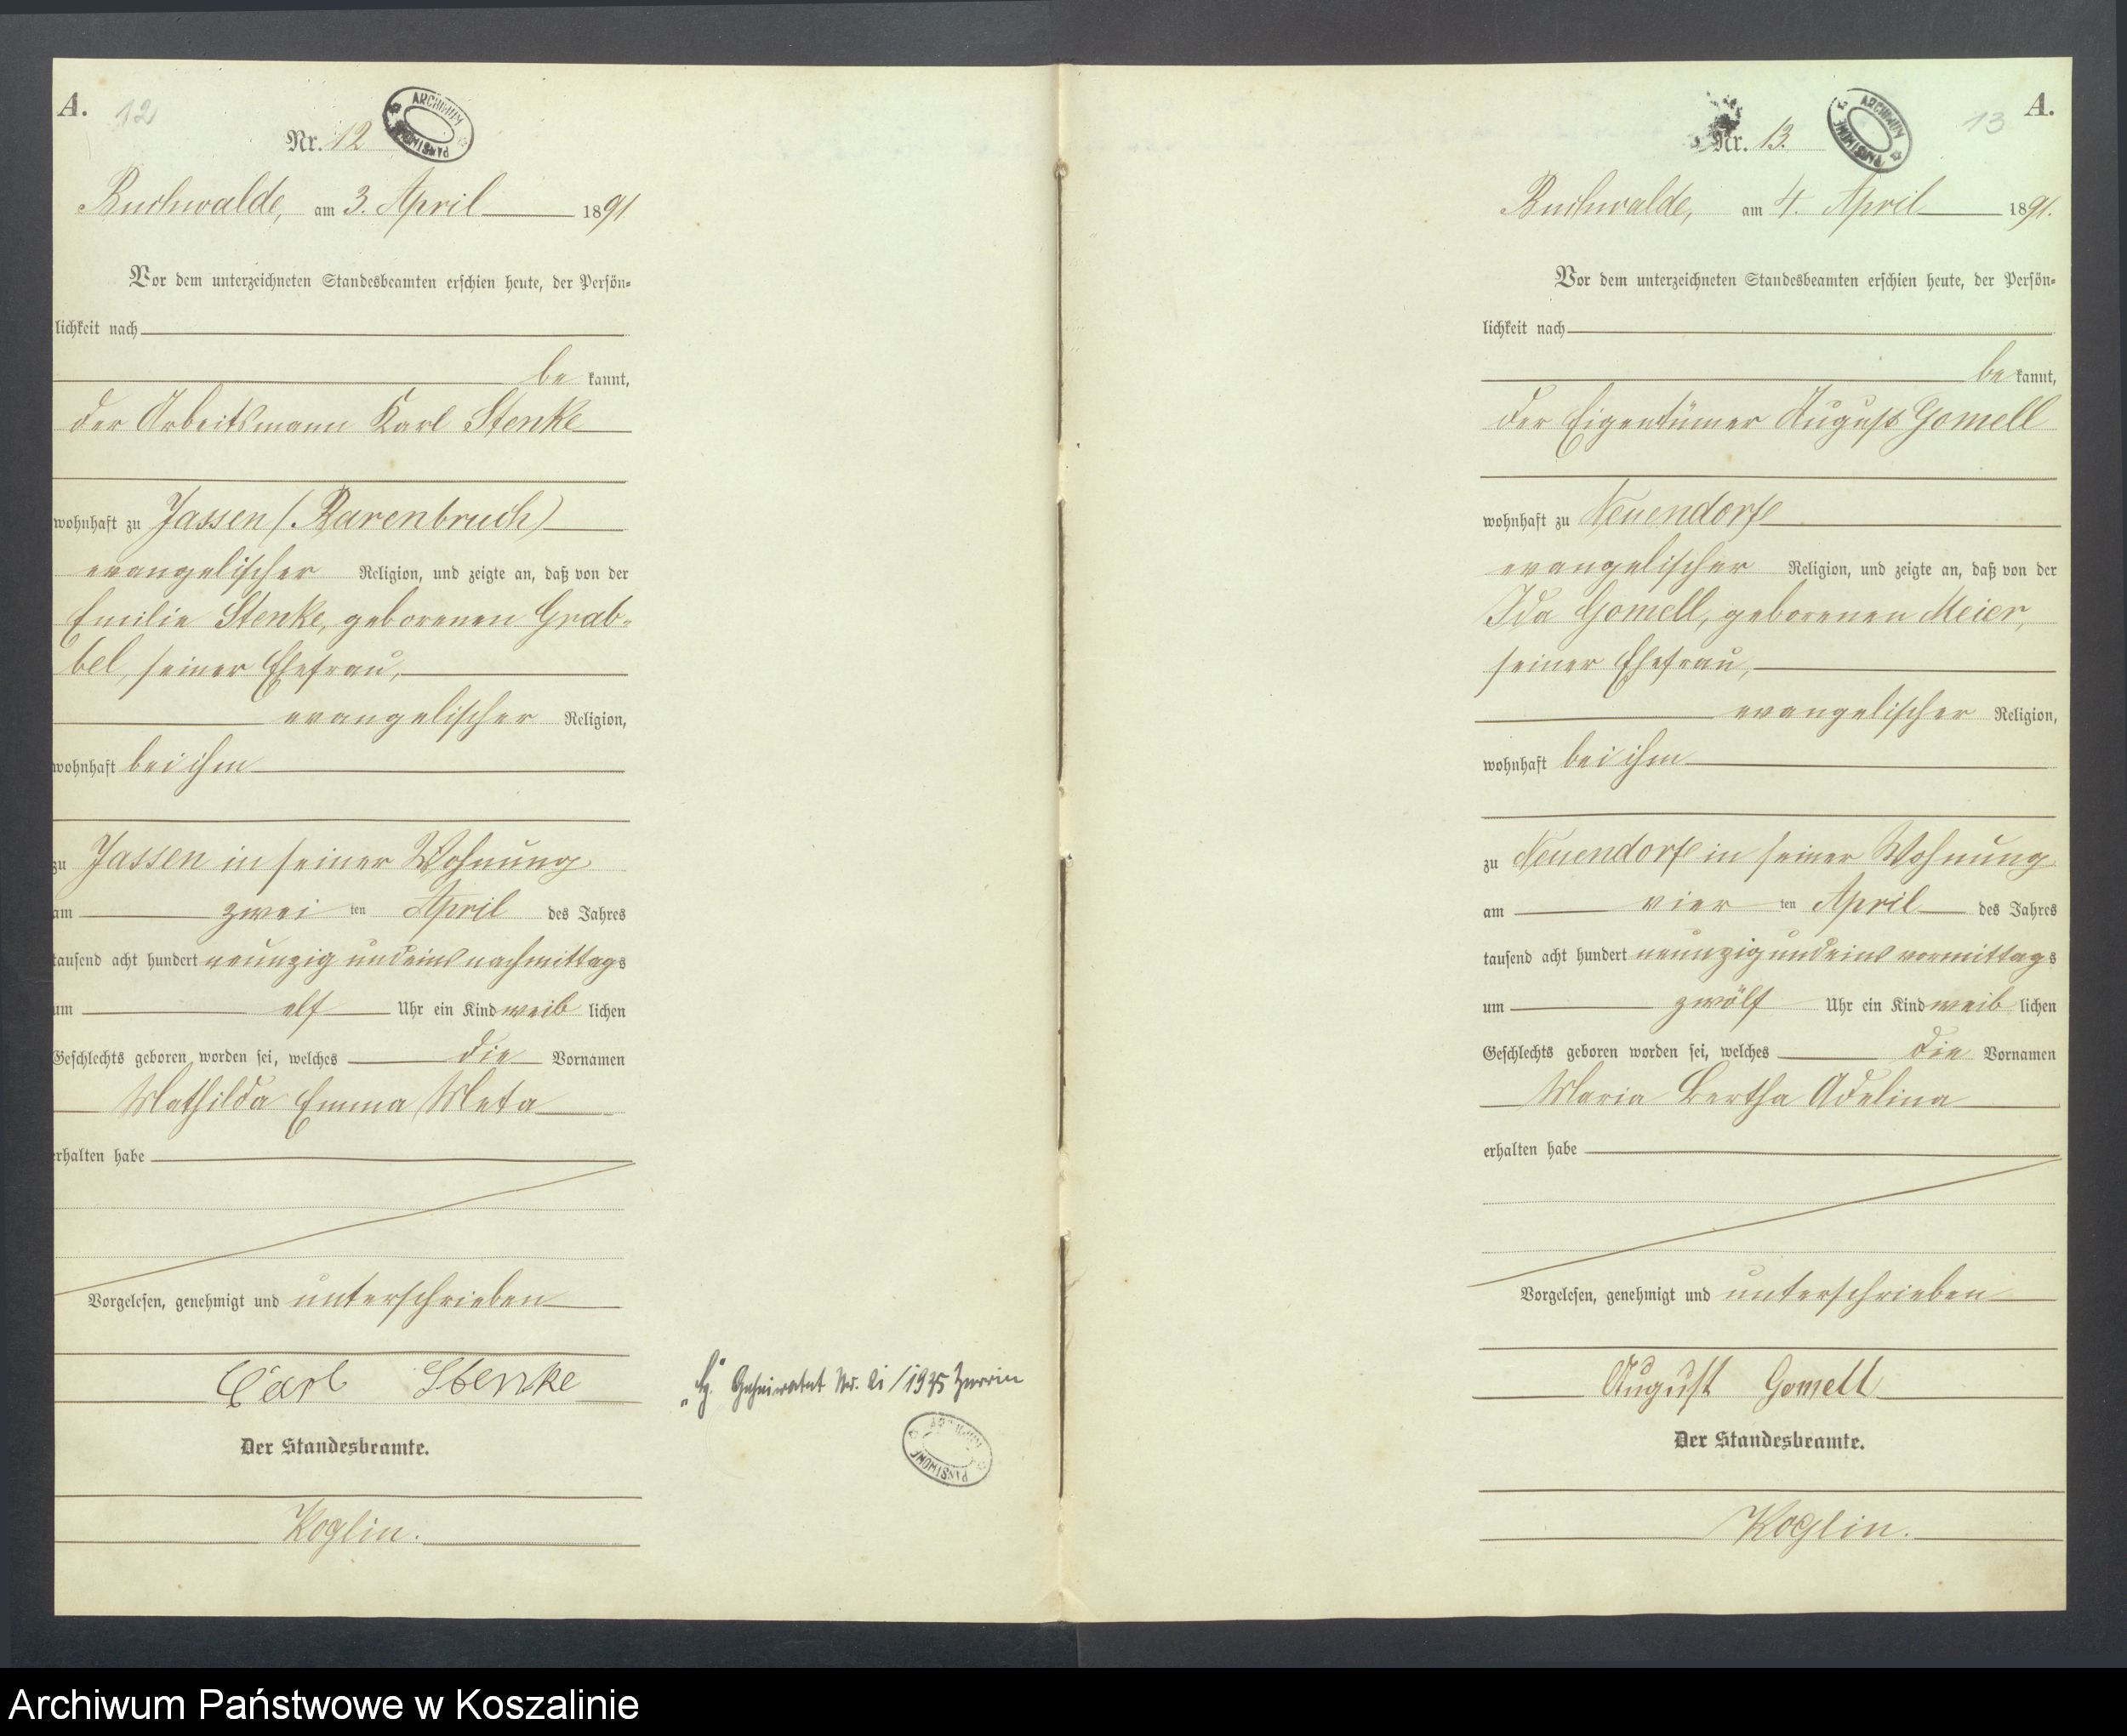 A.
12
Nr. 12
ARCHIWUM PAŃSTWOWE
Buchwalde, am 3. April 1891
Vor dem unterzeichneten Standesbeamten erschien heute, der Persön=
lichkeit nach
be kannt,
der Arbeitsmann Karl Stenke
wohnhaft zu Jassen (Barenbruch)
evangelischer Religion, und zeigte an, daß von der
Emilie Stenke, geborenen Grab=
bel, seiner Ehefrau,
evangelischer Religion,
wohnhaft bei ihm
zu Jassen in seiner Wohnung
am zwei ten April des Jahres
tausend acht hundert neunzig und eins nachmittags
um elf Uhr ein Kind weib lichen
Geschlechts geboren worden sei, welches die Vornamen
Mathilda Emma Meta
erhalten habe
Vorgelesen, genehmigt und unterschrieben
Carl Stenke
Der Standesbeamte.
Koglin.
Geheiratet Nr.
ARCHIWUM PAŃSTWOWE
A.
13
Nr. 13.
ARCHIWUM PAŃSTWOWE
Buchwalde, am 4. April 1891.
Vor dem unterzeichneten Standesbeamten erschien heute, der Persön=
lichkeit nach
be kannt,
der Eigentümer August Gomell
wohnhaft zu Neuendorf
evangelischer Religion, und zeigte an, daß von der
Ida Gomell, geborenen Meier,
seiner Ehefrau,
evangelischer Religion,
wohnhaft bei ihm
zu Neuendorf in seiner Wohnung
am vier ten April des Jahres
tausend acht hundert neunzig und eins vormittags
um zwölf Uhr ein Kind weib lichen
Geschlechts geboren worden sei, welches die Vornamen
Maria Bertha Adelina
erhalten habe
Vorgelesen, genehmigt und unterschrieben
August Gomell
Der Standesbeamte.
Koglin.
Archiwum Państwowe w Koszalinie